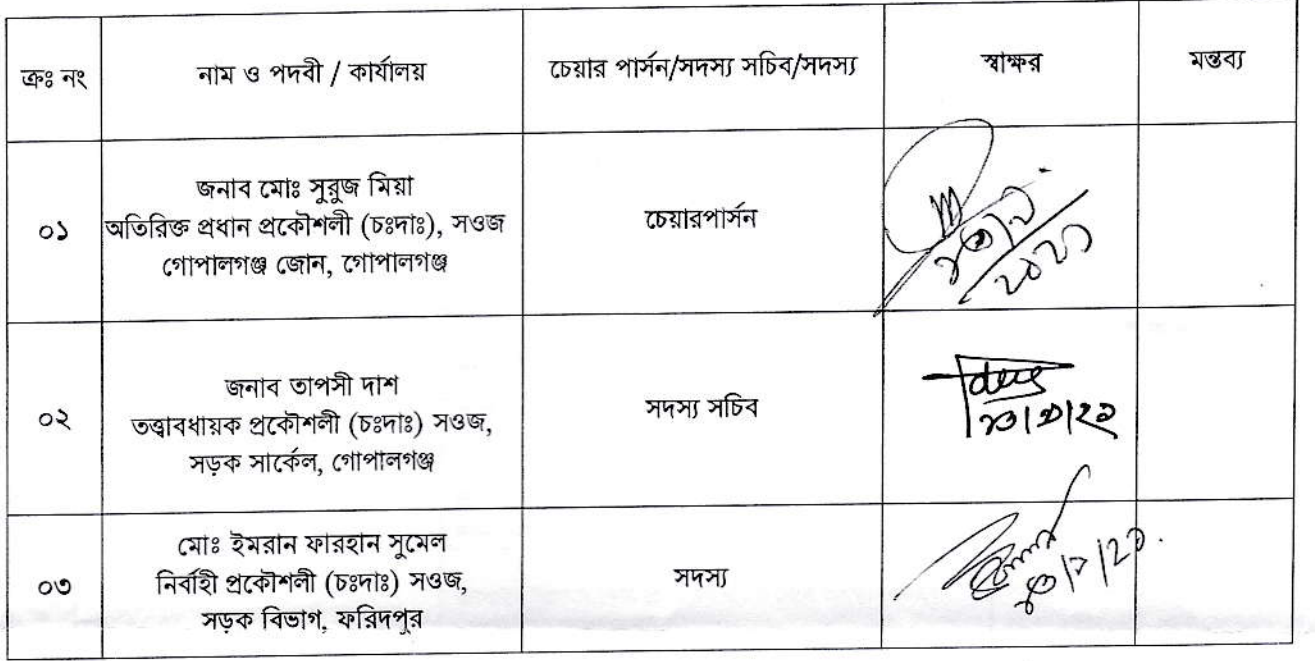 ক্রঃ নং নাম ও পদবী / কার্যালয় চেয়ার পার্সন/সদস্য সচিব/সদস্য স্বাক্ষর মন্তব্য
০১
জনাব মোঃ সুরুজ মিয়া
অতিরিক্ত প্রধান প্রকৌশলী (চঃদাঃ), সওজ
গোপালগঞ্জ জোন, গোপালগঞ্জ
চেয়ারপার্সন
০২
জনাব তাপসী দাশ
তত্ত্বাবধায়ক প্রকৌশলী (চঃদাঃ) সওজ,
সড়ক সার্কেল, গোপালগঞ্জ
সদস্য সচিব
০৩
মোঃ ইমরান ফারহান সুমেল
নির্বাহী প্রকৌশলী (চঃদাঃ) সওজ,
সড়ক বিভাগ, ফরিদপুর
সদস্য